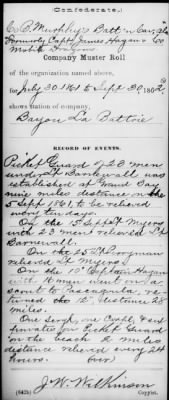 (Confederate.)
C. B. Murphy's Batt'n Cavalry
Formerly Capt. James Hagan's Co
Mobile Dragoons
Company Muster Roll
of the organization named above,
for July 30 1861 to Sept 30, 1862
shows station of company,
Bayou La Battrie
RECORD OF EVENTS.
Picket Guard of 23 men
under Lt Barnewall was
established at Grand Bay
nine miles distance on the
5 Sept 1861 to be relieved
every ten days.
On the 15 Sept Lt Myers
with 23 men relieved Lt
Barnewall.
On the 25 Lt
relieved Lt Myers.
On the 10 Captain Hagan
with men went on a
scout to Pascagoula, re-
turned the 12" distance 28
miles.
One Sergt, one Corpl, &
privates on Picket Guard
on the beach 2 miles
distance relieved every 24
hours.
J. W. Wilkinson
(642) Copyist.